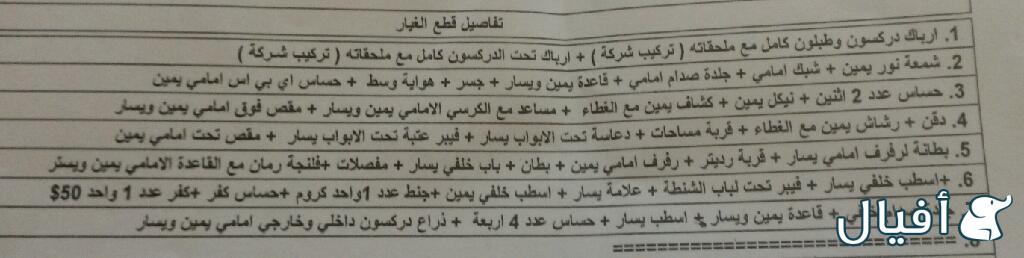 تفاصيل قطع الغيار
1. ارباك دركسون وطبلون كامل مع ملحقاته ( تركيب شركة ) + ارباك تحت الدركسون كامل مع ملحقاته ( تركيب شركة )
2. شمعة نور يمين + شبك امامي + جلدة صدام امامي + قاعدة يمين ويسار + جسر + هواية وسط + حساس اي بي اس امامي يمين
3. حساس عدد 2 اثنين + نيكل يمين + كشاف يمين مع الغطاء + مساعد مع الكرسي الامامي يمين ويسار + مقص فوق امامي يمين ويسار
4. دقن + رشاش يمين مع الغطاء + قربة مساحات + دعاسة تحت الابواب يسار + فيبر عتبة تحت الابواب يسار + مقص تحت امامي يمين
5. بطانة لرفرف امامي يسار + قربة رديتر + رفرف امامي يمين + بطان + باب خلفي يسار + مفصلات +فلنجة رمان مع القاعدة الامامي يمين ويستر
6. +اسطب خلفي يسار + فيبر تحت لباب الشنطة + علامة يسار + اسطب خلفي يمين +جنط عدد 1واحد كروم +حساس كفر +كفر عدد 1 واحد 50$
+ قاعدة يمين ويسار + اسطب يسار + حساس عدد 4 اربعة + ذراع دركسون داخلي وخارجي امامي يمين ويسار
8. ==============================
أفيال